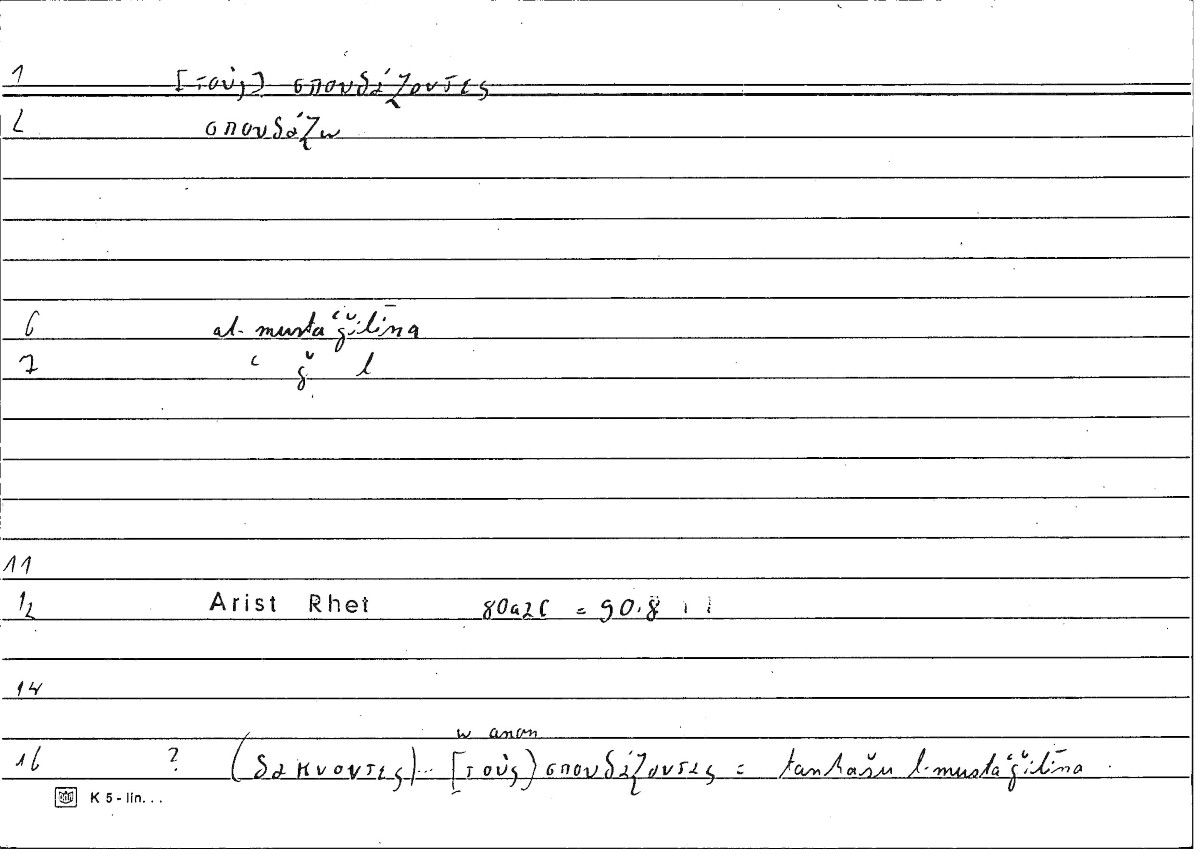 1 [τοὺς] σπουδάζοντες
2 σπουδάζω
6 al-mustaʿǧilīna
7 ʿ ǧ l
11
12 Arist Rhet 80a26 = 90.8
14
w anon
16 ? (δάκνοντες)... [τοὺς] σπουδάζοντες = tanhašu l-mustaʿǧilīna.
K 5 - lin...